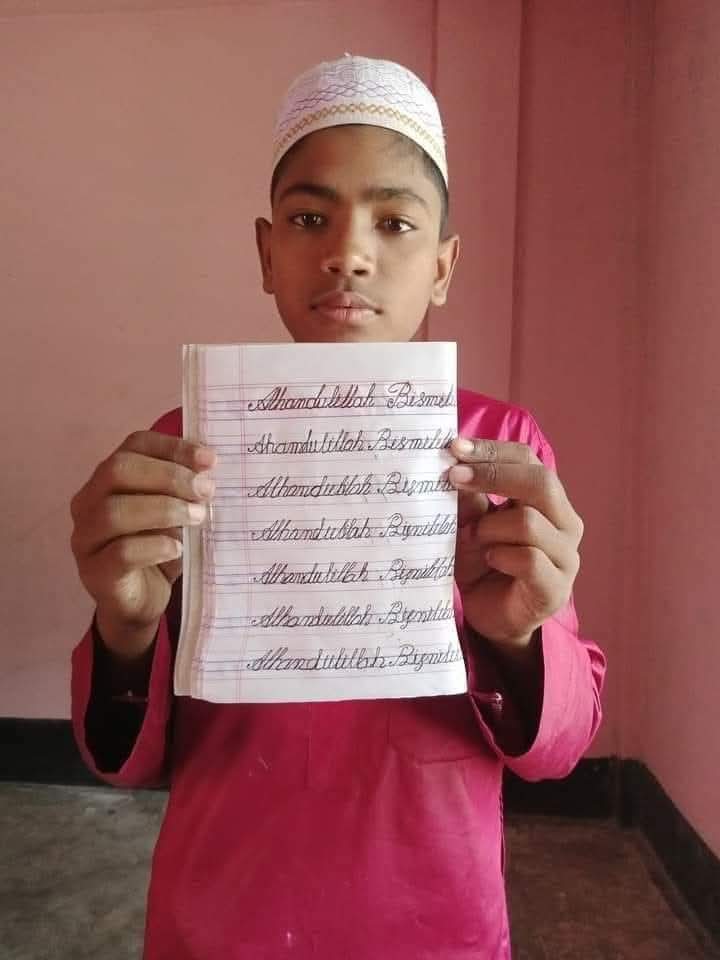 Alhamdulillah Bismil
Ahamdulillah Bismilill
Alhandublah Bismili
Alhandubllah Bignililah
Alhandulillah Bignillah
Alhandulillah Bignilila
Alhandulillah Bignilil